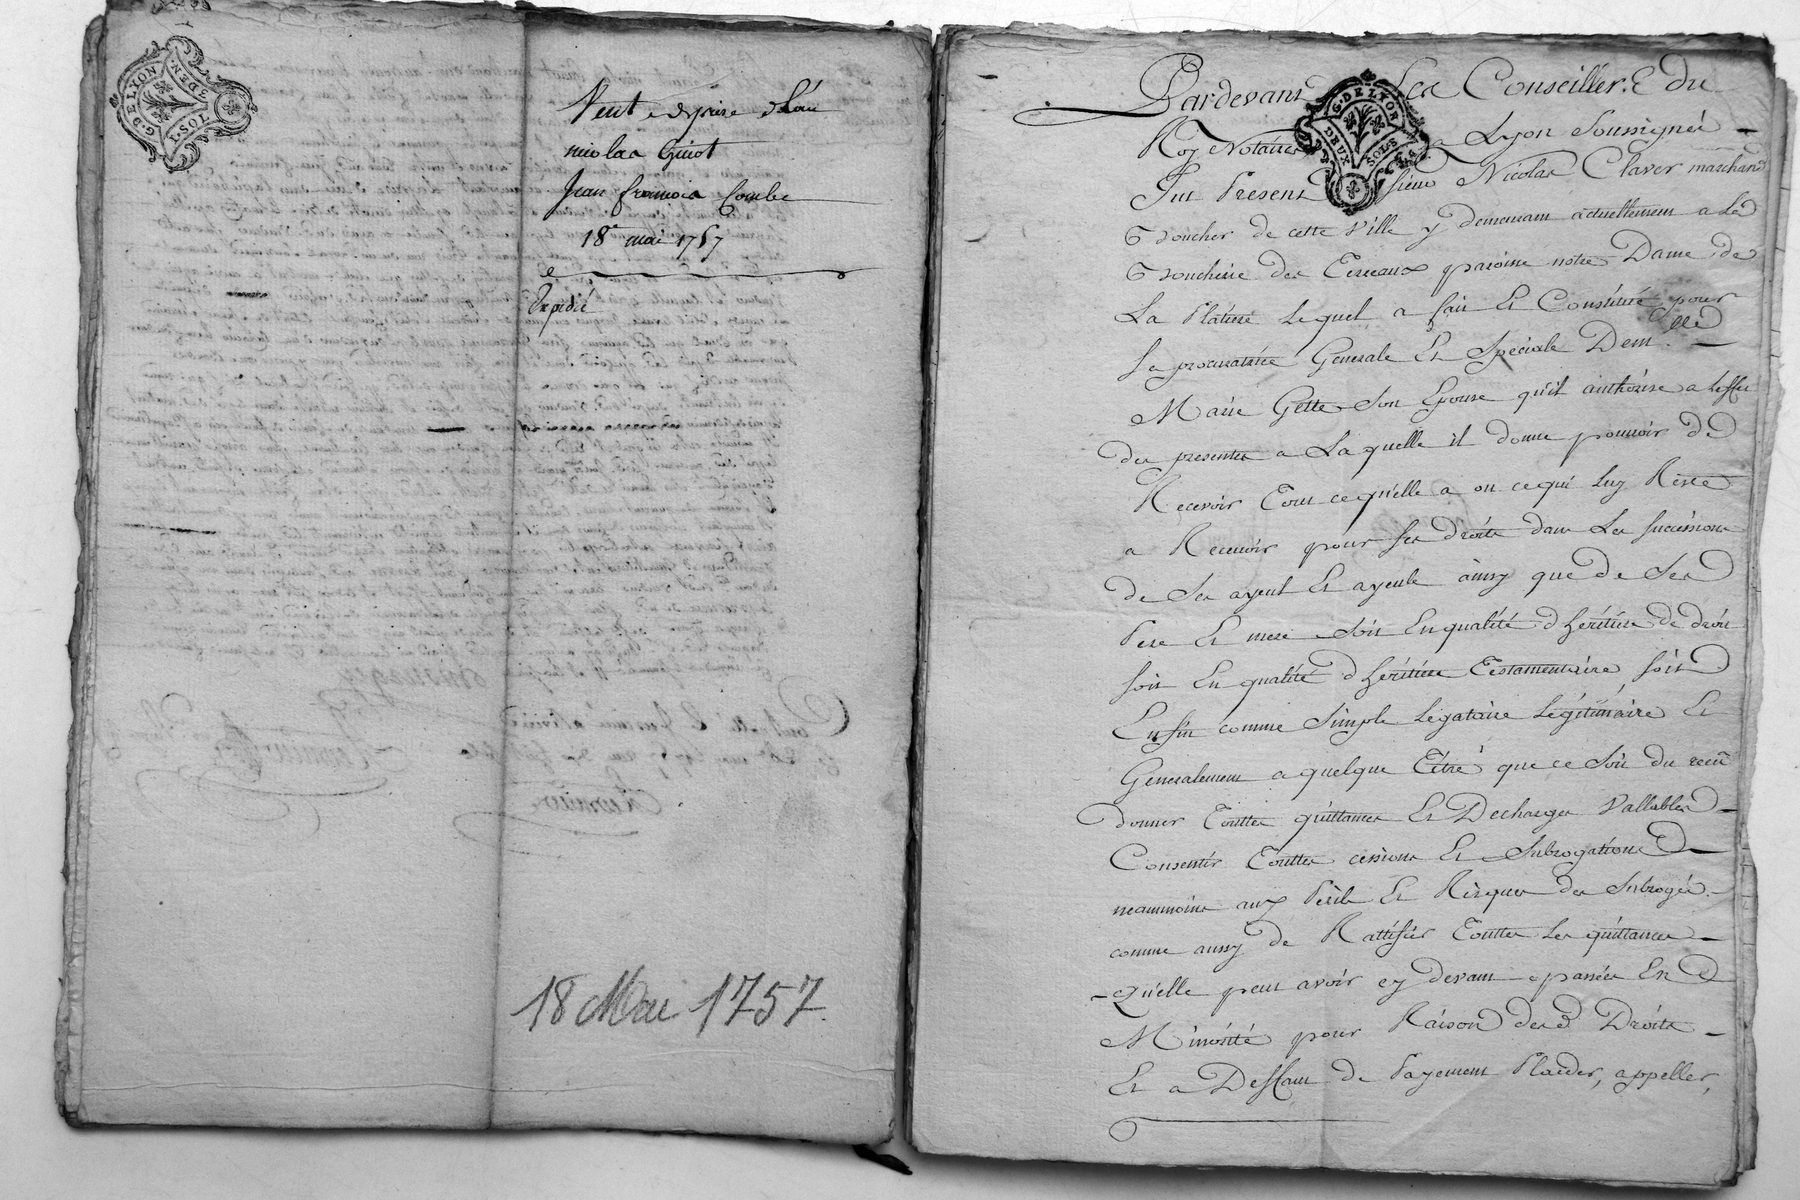 G. DE LYON
I. SOL 3 DEN.
Vente prise d'eau
nicolas Guiot
Jean francois Combe
18e mai 1757
Expedié
18 Mai 1757.
G. DE LYON
DEUX SOLS
Pardevant Les Conseillers du
Roy Notaires a Lyon Soussignés
Fut Present sieur Nicolas Claver marchand
Boucher de cette Ville y demeurant actuellement a la
Boucherie des Terreaux paroisse notre Dame de
La Platiere Lequel a fait Et Constitué pour
sa procuratrice Generale Et Speciale Dem.lle
Marie Gette Son Epouse qu'il authorise a L'effet
des presentes a Laquelle il donne pouvoir de
Recevoir Tout ce qu'elle a ou ce qui Luy Reste
a Recevoir pour ses droits dans Les successions
de Ses ayeul Et ayeule ainsy que de Ses
Pere Et mere Soit En qualité d'héritiere de droit
soit En qualité d'héritiere Testamentaire soit
Enfin comme Simple Légataire Légitimaire Et
Generalement a quelque Titre que ce Soit du receu
donner Touttes quittances Et Decharges Vallables
Consentir Touttes cessions Et Subrogations
neammoins aux Perils Et Risques des Subrogés
comme aussy de Rattifier Touttes Les quittances
Qu'elle peut avoir cy devant passées En
Minorité pour Raison desd. Droits
Et a Deffaut de Payement Plaider, appeller,